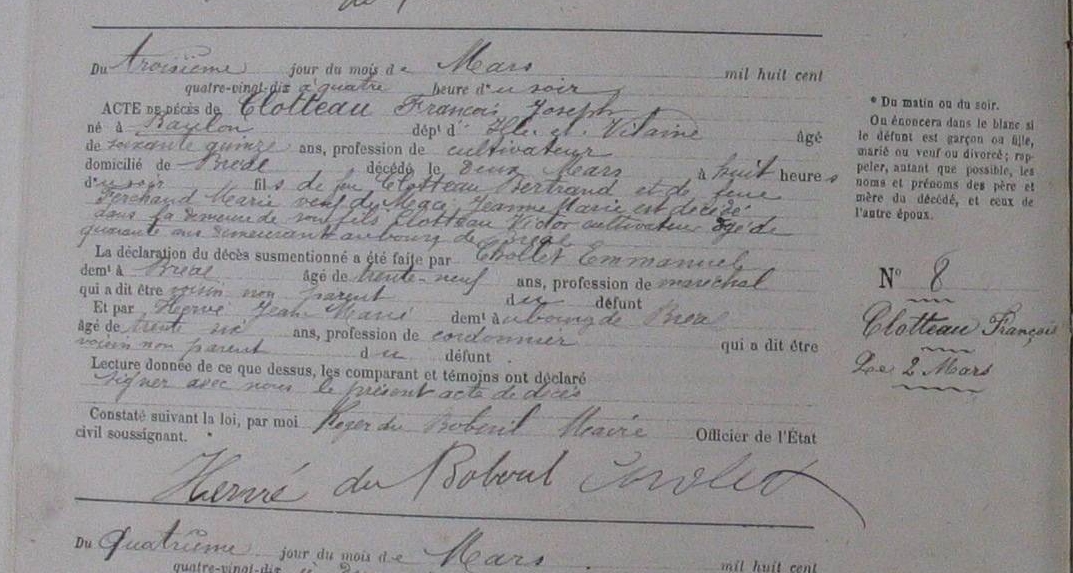 Du troisième jour du mois de Mars mil huit cent
quatre-vingt-dix à quatre heure du soir
ACTE DE DÉCÈS de Clotteau François Joseph
né à Baulon dépt d' Ille et Vilaine âgé
de soixante quinze ans, profession de cultivateur
domicilié de Bréal, décédé le deux Mars à huit heures
du soir fils de feu Clotteau Bertrand et de feue
Ferchaud Marie veuf de Jeanne Marie est décédé
dans la demeure de son fils Clotteau Victor cultivateur âgé de
quarante ans demeurant au bourg de Bréal
La déclaration du décès susmentionné a été faite par Chollet Emmanuel
demt à Bréal âgé de trente-neuf ans, profession de maréchal
qui a dit être voisin non parent du défunt
Et par Hervé Jean Marie demt au bourg de Bréal
âgé de trente six ans, profession de cordonnier qui a dit être
voisin non parent du défunt.
Lecture donnée de ce que dessus, les comparant et témoins ont déclaré
signer avec nous le présent acte de décès
Constaté suivant la loi, par moi du Boberil Maire Officier de l'État
civil soussignant.
Hervé du Boberil
* Du matin ou du soir.
On énoncera dans le blanc si
le défunt est garçon ou fille,
marié ou veuf ou divorcé; rap-
peler, autant que possible, les
noms et prénoms des père et
mère du décédé, et ceux de
l'autre époux.
N° 8
Clotteau François
Le 2 Mars
Du Quatrième jour du mois de Mars mil huit cent
quatre-vingt-dix à